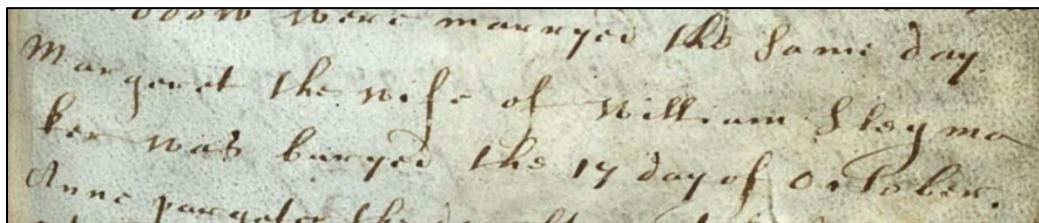 were marryed the same day
Margeret the wife of William Sleyma
ker was buryed the 17 day of October.
Anne pargeter the